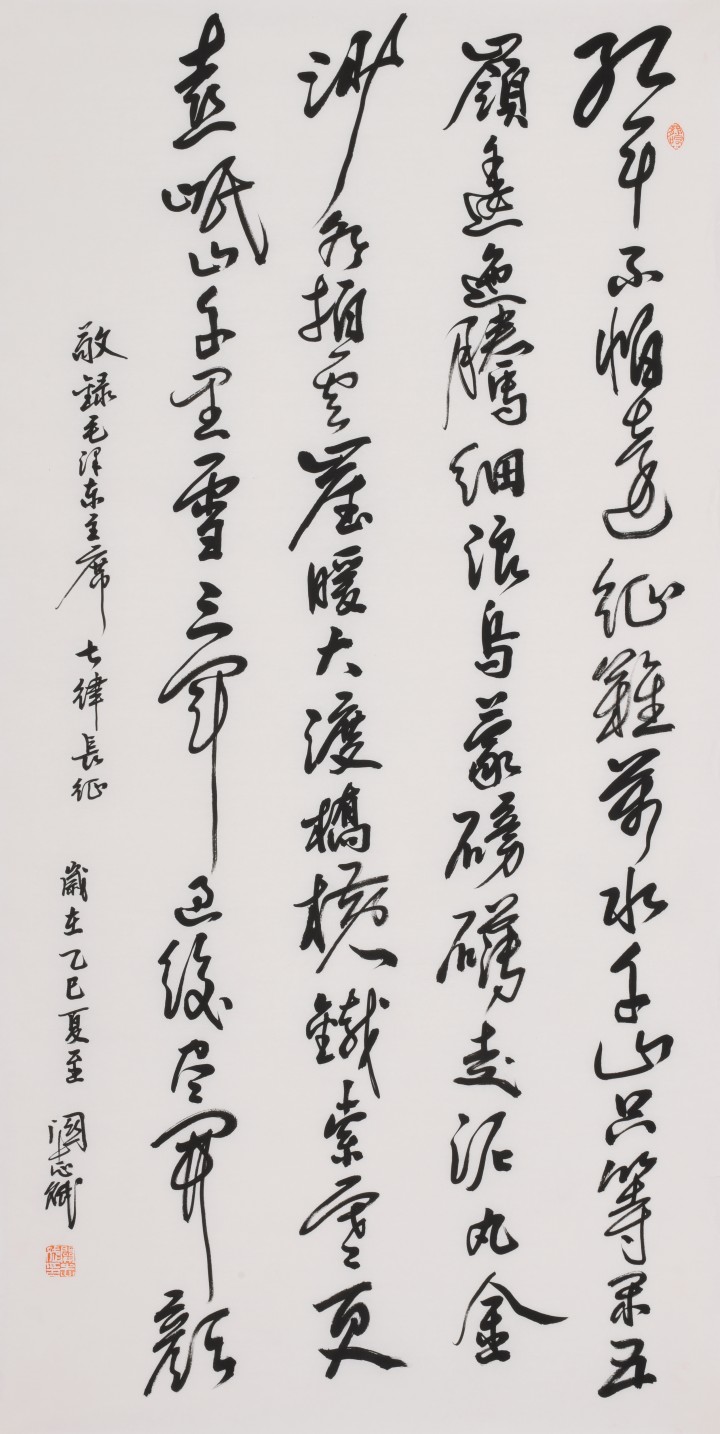 紅軍不怕遠征難萬水千山只等閒五
嶺逶迤騰細浪烏蒙磅礴走泥丸金
沙水拍雲崖暖大渡橋橫鐵索寒更
喜岷山千里雪三軍過後盡開顏
敬録毛泽东主席七律長征 歲在乙巳夏至